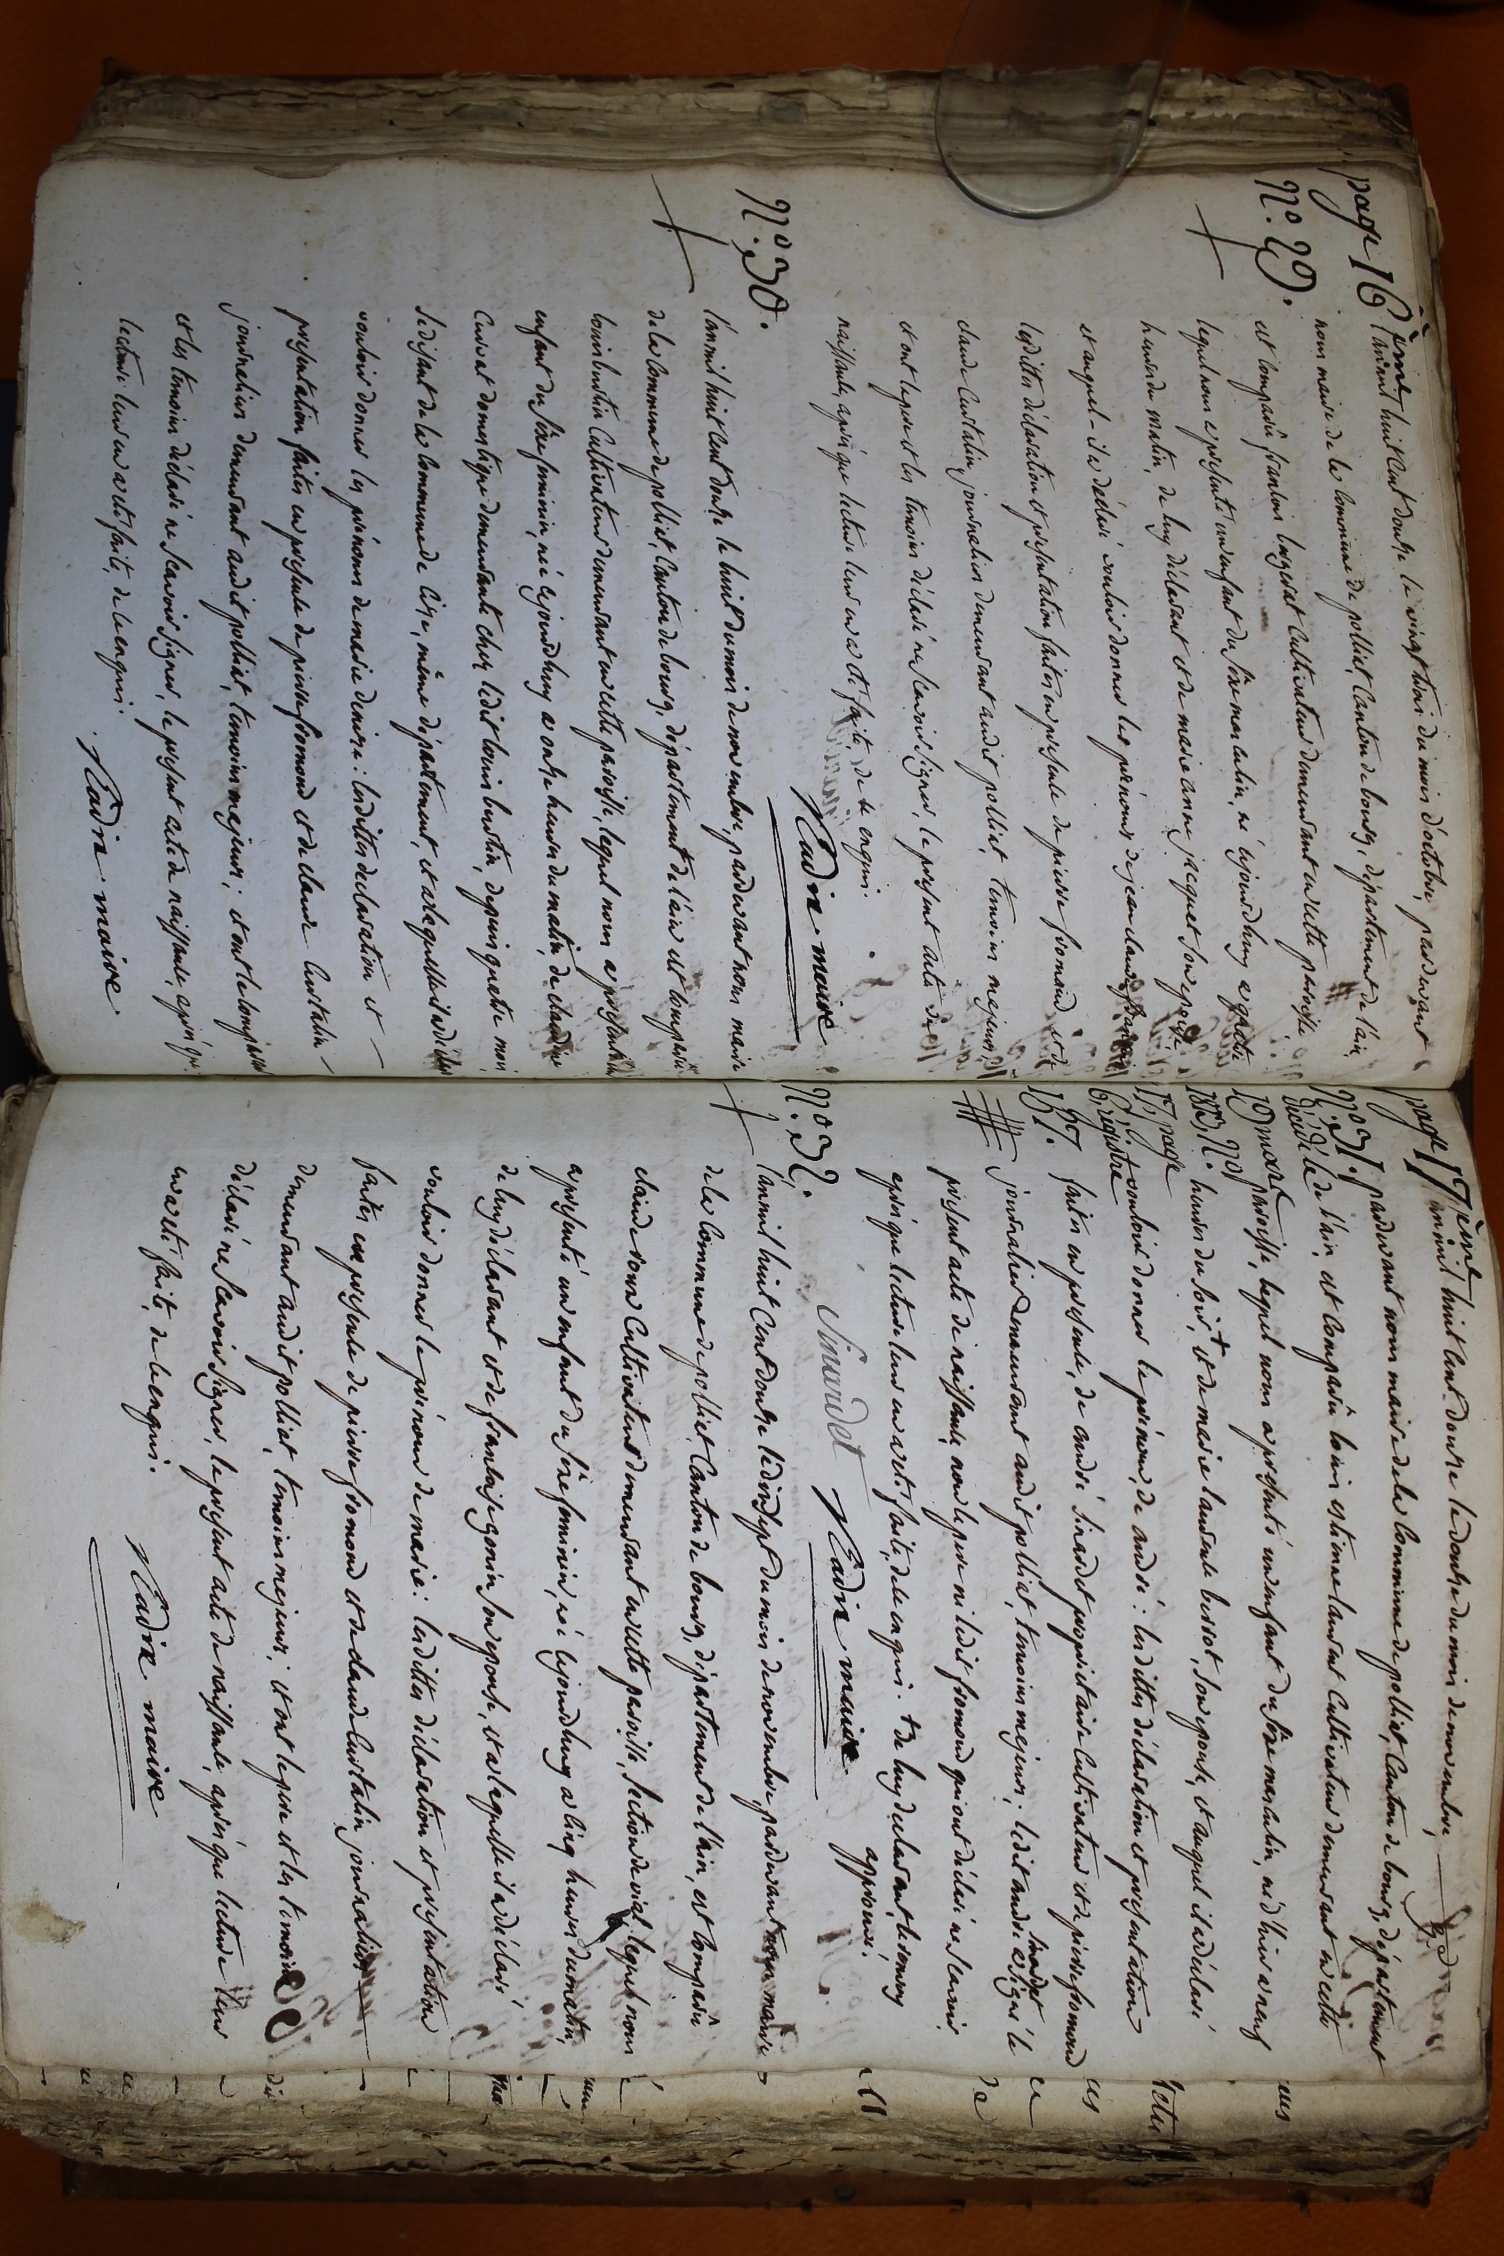 page 16ème
N°. 29.
l'an mil huit cent douze le vingt trois du mois d'octobre, pardevant
nous maire de la commune de polliat, canton de bourg, département de l'ain,
est comparû françois cultivateur demeurant en cette paroisse,
lequel nous a présenté un enfant du sexe masculin, né cejourdhuy a quatre
heures du matin, de luy déclarant et de marie anne jacquet son épouse
et auquel il a déclaré vouloir donner les prénoms de jean claude
lesdittes déclaration et présentation faites en présence de pierre fromond et de
claude Curtalin, journalier demeurant audit polliat, temoins majeurs,
et ont le pere et les temoins déclaré ne scavoir signer, le présent acte de
naissance, après que lecture leur en a été faite, de ce enquis.
Cadie maire
N°. 30.
l'an mil huit cent douze le huit du mois de novembre, pardevant nous maire
de la commune de polliat, canton de bourg, département de l'ain est comparû
louis cultivateur demeurant en cette paroisse, lequel nous a présenté un
enfant du sexe feminin, née cejourdhuy a onze heures du matin, de claudine
domestique demeurante chez ledit louis depuis quatre mois
se disant de la commune de même département, et a laquelle il a déclaré
vouloir donner les prénoms de marie denise: lesdittes déclaration et
présentation faites en présence de pierre fromond et de claude Curtalin
journalier demeurant audit polliat, temoins majeurs; et ont le comparant
et les temoins déclaré ne scavoir signer, le présent acte de naissance, après que
lecture leur en a été faite, de ce enquis.
Cadie maire
page 17ème
N°. 31.
décédé le
19 mars
1873, N°.
17, page
6, registre
187.
l'an mil huit cent douze le douze du mois de novembre,
pardevant nous maire de la commune de polliat, canton de bourg, département
de l'ain, est comparû louis estienne laurent cultivateur demeurant en cette
paroisse, lequel nous a présenté un enfant du sexe masculin, né d'hier a neuf
heures du soir, + et de marie laurence bessot, son épouse, et auquel il a déclaré
vouloir donner le prénom, de andré: lesdittes déclaration et présentation
faites en présence, de andré sinardet propriétaire cultivateur et de pierre fromond
journalier demeurant audit polliat, temoins majeurs; ledit andré sinardet a signé le
présent acte de naissance, non le pere ni ledit fromond qui ont déclaré ne scavoir
après que lecture leur en a été faite, de ce enquis. + de luy déclarant, le renvoy
approuvé.
Sinardet Cadie maire
N°. 32.
l'an mil huit cent douze le dix sept du mois de novembre, pardevant nous maire
de la commune de polliat, canton de bourg, département de l'ain, est comparû
claude cultivateur demeurant en cette paroisse, section de lequel nous
a présenté un enfant du sexe feminin, né cejourdhuy a cinq heures du matin,
de luy déclarant et de françoise gonin son épouse, et a laquelle il a déclaré
vouloir donner le prénom de marie: lesdittes déclaration et présentation
faites en présence de pierre fromond et de claude Curtalin journalier
demeurant audit polliat, temoins majeurs; et ont le pere et les temoins
déclaré ne scavoir signer, le présent acte de naissance, après que lecture leur
en a été faite, de ce enquis.
Cadie maire